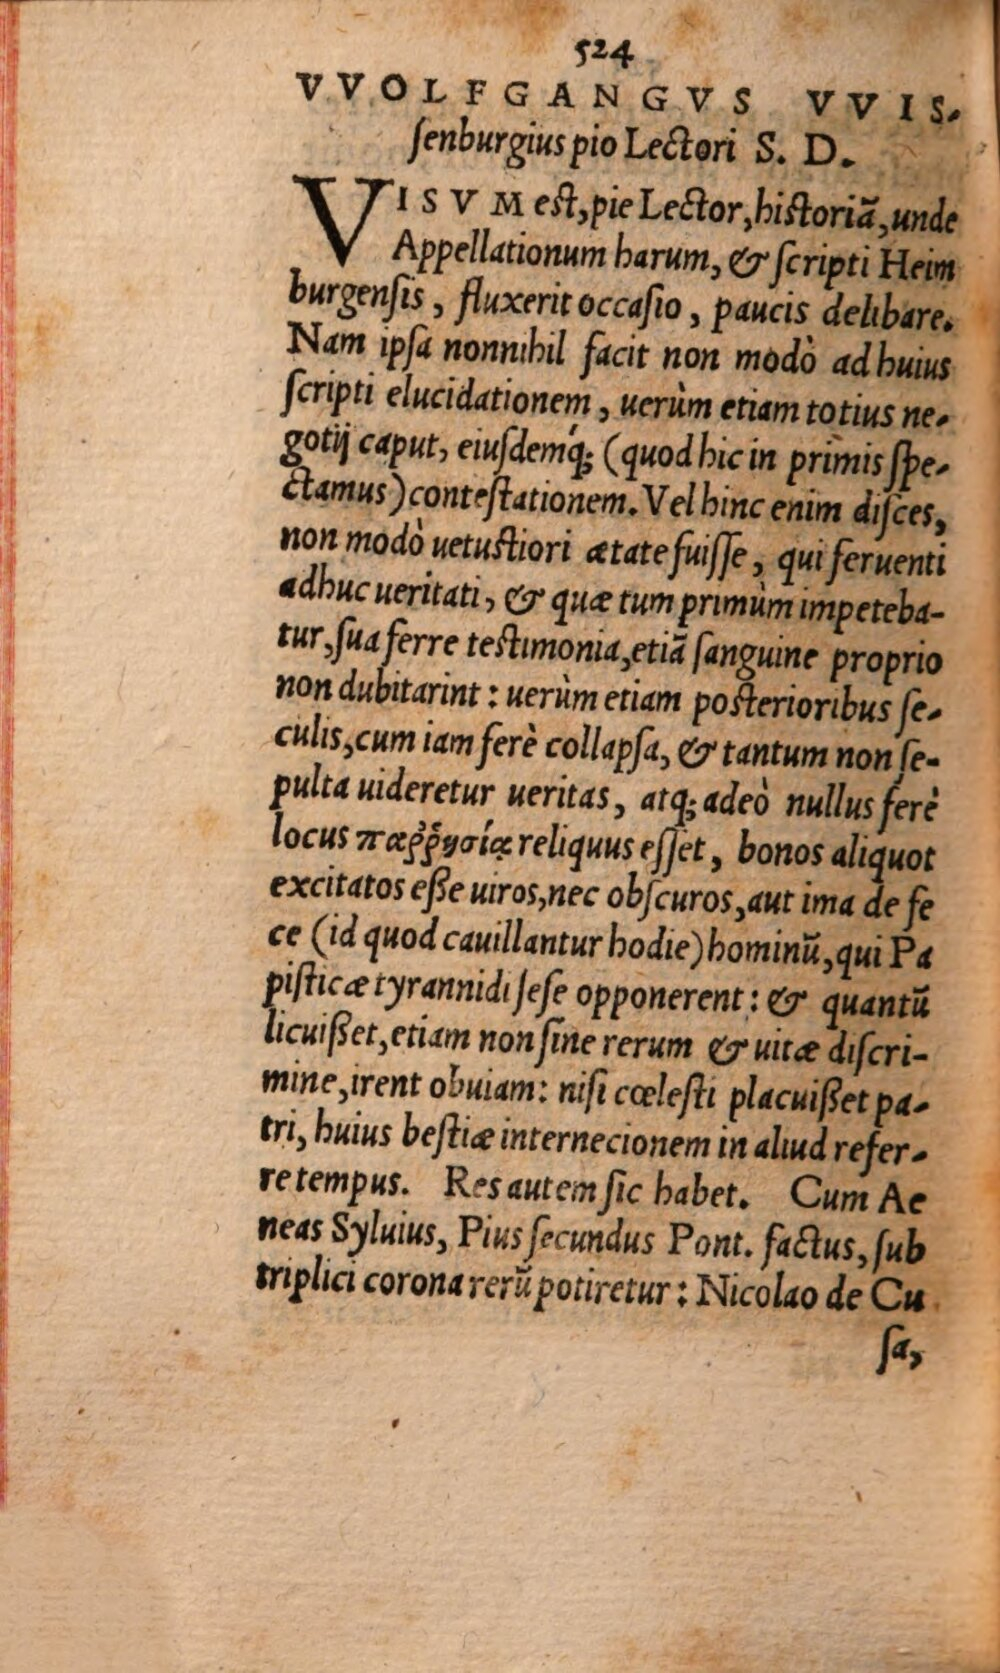 524
VVOLFGANGVS VVIS-
ſenburgius pio Lectori S. D.
VISVM est, pie Lector, historiā, unde
Appellationum harum, & ſcripti Heim
burgenſis, fluxerit occaſio, paucis delibare.
Nam ipſa nonnihil facit non modò ad huius
ſcripti elucidationem, uerùm etiam totius ne-
gotij caput, eiuſdemq́; (quod hic in primis ſpe-
ctamus) conteſtationem. Vel hinc enim diſces,
non modò uetustiori ætate fuiſſe, qui feruenti
adhuc ueritati, & quæ tum primùm impeteba-
tur, ſua ferre testimonia, etiā ſanguine proprio
non dubitarint: uerùm etiam posterioribus ſe-
culis, cum iam ferè collapſa, & tantum non ſe-
pulta uideretur ueritas, atq; adeò nullus ferè
locus παῤῥησίᾳ reliquus eſſet, bonos aliquot
excitatos eße uiros, nec obſcuros, aut ima de fe
ce (id quod cauillantur hodie) hominū, qui Pa
piſticæ tyrannidi ſeſe opponerent: & quantū
licuißet, etiam non ſine rerum & uitæ diſcri-
mine, irent obuiam: niſi cœleſti placuißet pa-
tri, huius beſtiæ internecionem in aliud refer-
re tempus. Res autem ſic habet. Cum Ae
neas Syluius, Pius ſecundus Pont. factus, ſub
triplici corona rerū potiretur: Nicolao de Cu
ſa,